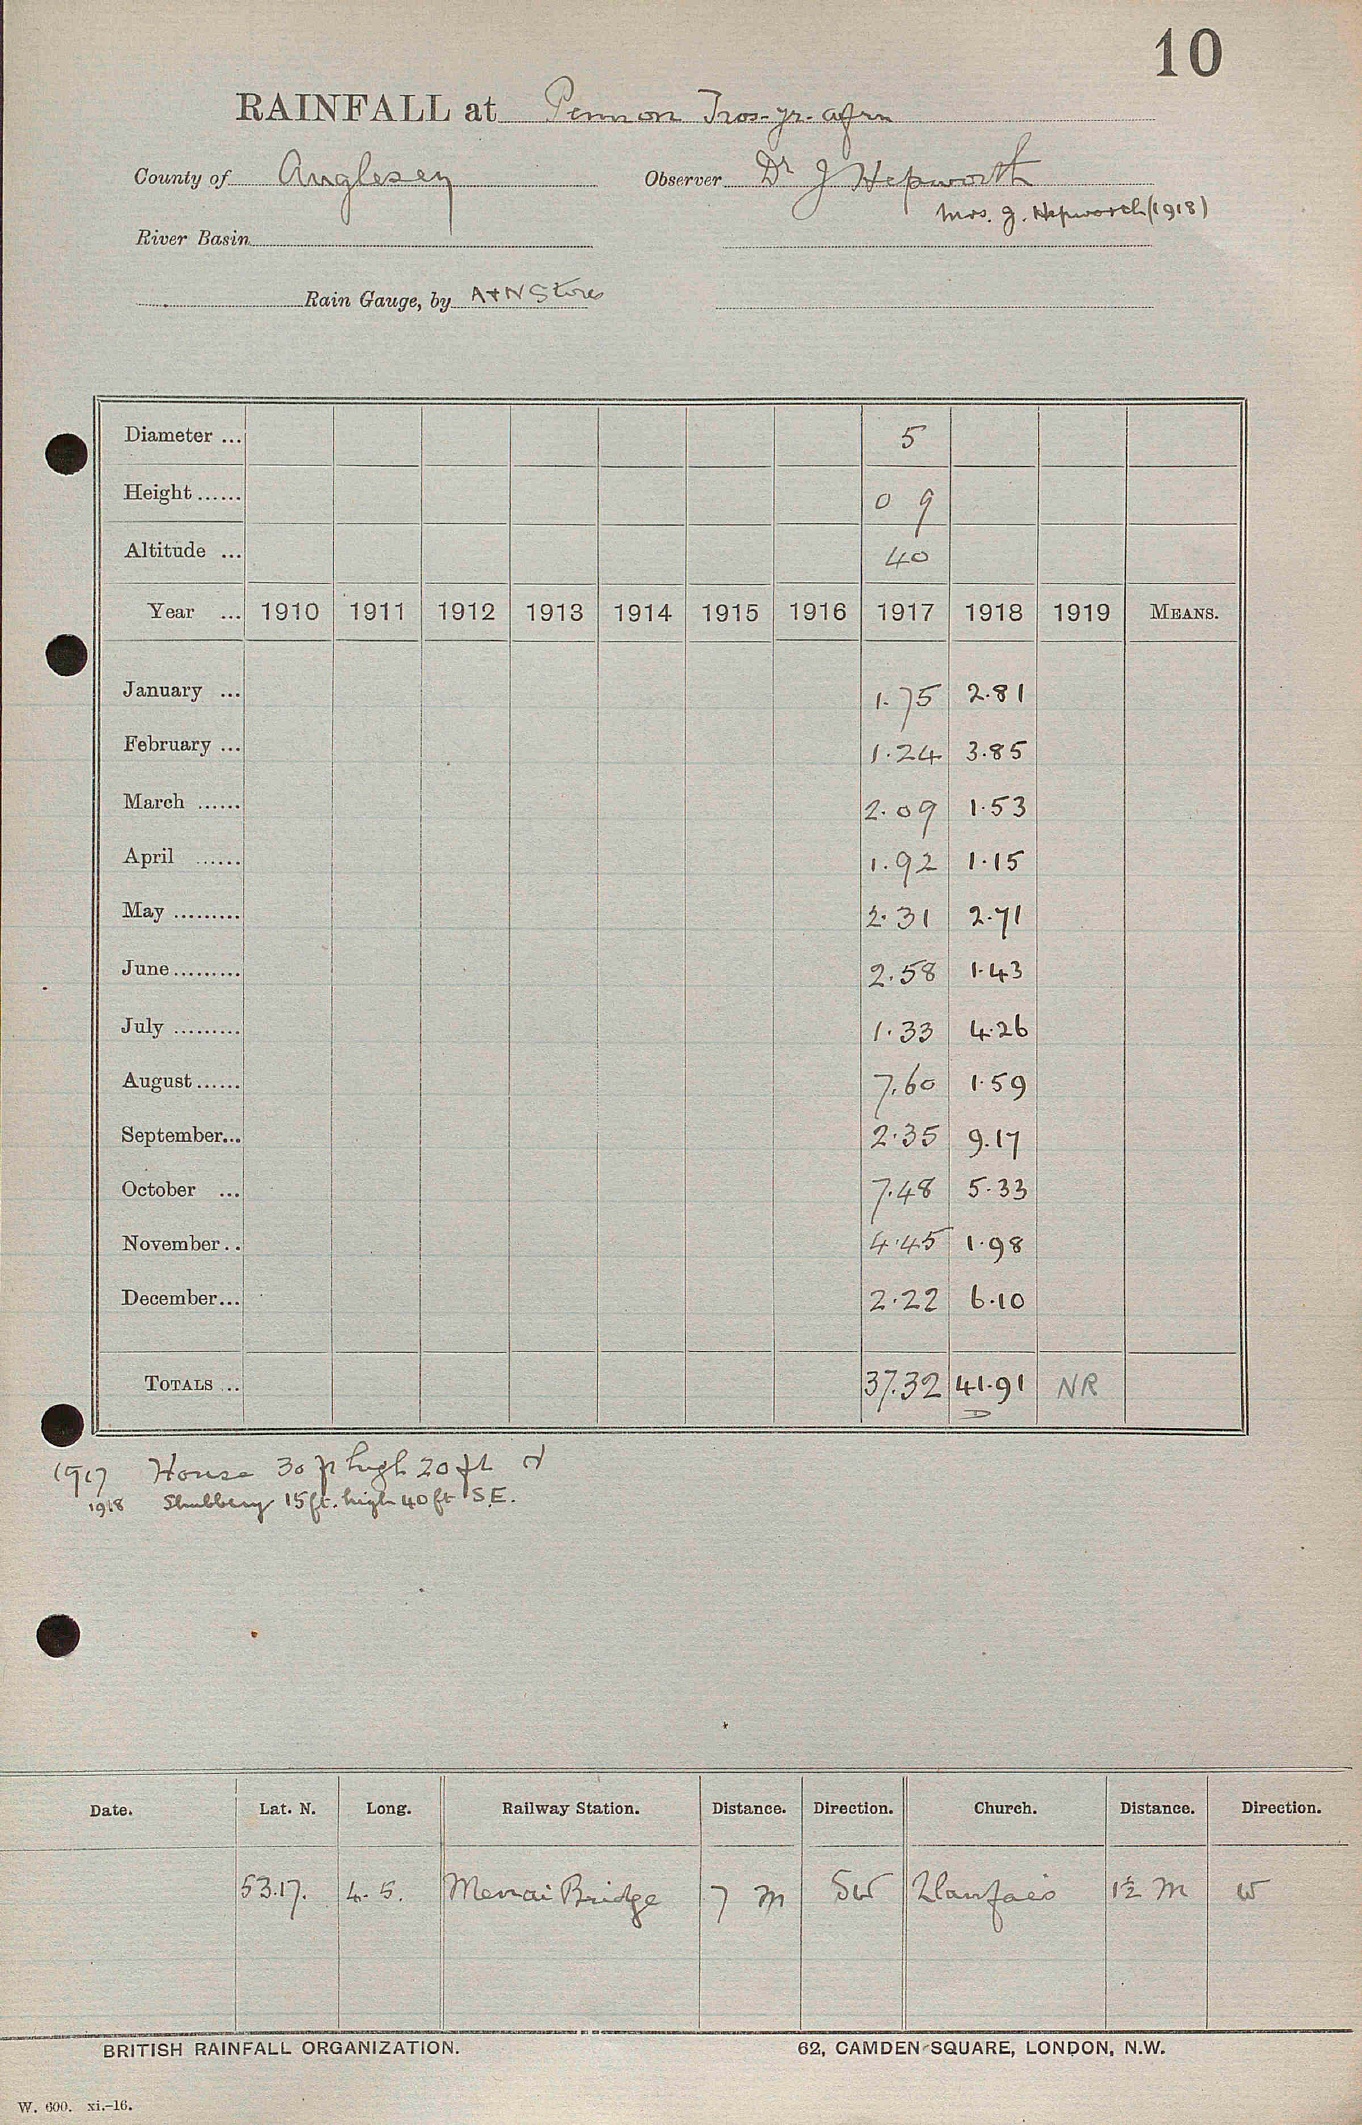 10
RAINFALL at Penmon Tros-yr-afon
County of Anglesey Observer Dr J Hepworth
Mrs. J. Hepworth (1918)
River Basin
Rain Gauge, by A+N Stores
Diameter ... 5
Height ...... 0 9
Altitude ... 40
Year ... 1910 1911 1912 1913 1914 1915 1916 1917 1918 1919 MEANS.
January ... 1.75 2.81
February ... 1.24 3.85
March ...... 2.09 1.53
April ...... 1.92 1.15
May ......... 2.31 2.71
June ......... 2.58 1.43
July ......... 1.33 4.26
August ...... 7.60 1.59
September... 2.35 9.17
October ... 7.48 5.33
November.. 4.45 1.98
December... 2.22 6.10
TOTALS ... 37.32 41.91 NR
D
1917 House 30 ft high 20 ft
1918 Shubbery 15 ft. high 40 ft S.E.
Date. Lat. N. Long. Railway Station. Distance. Direction. Church. Distance. Direction.
53.17. 4. 5. Menai Bridge 7 m SW Llanfaes 1½ m W
BRITISH RAINFALL ORGANIZATION. 62, CAMDEN SQUARE, LONDON, N.W.
W. 600. xi.-16.